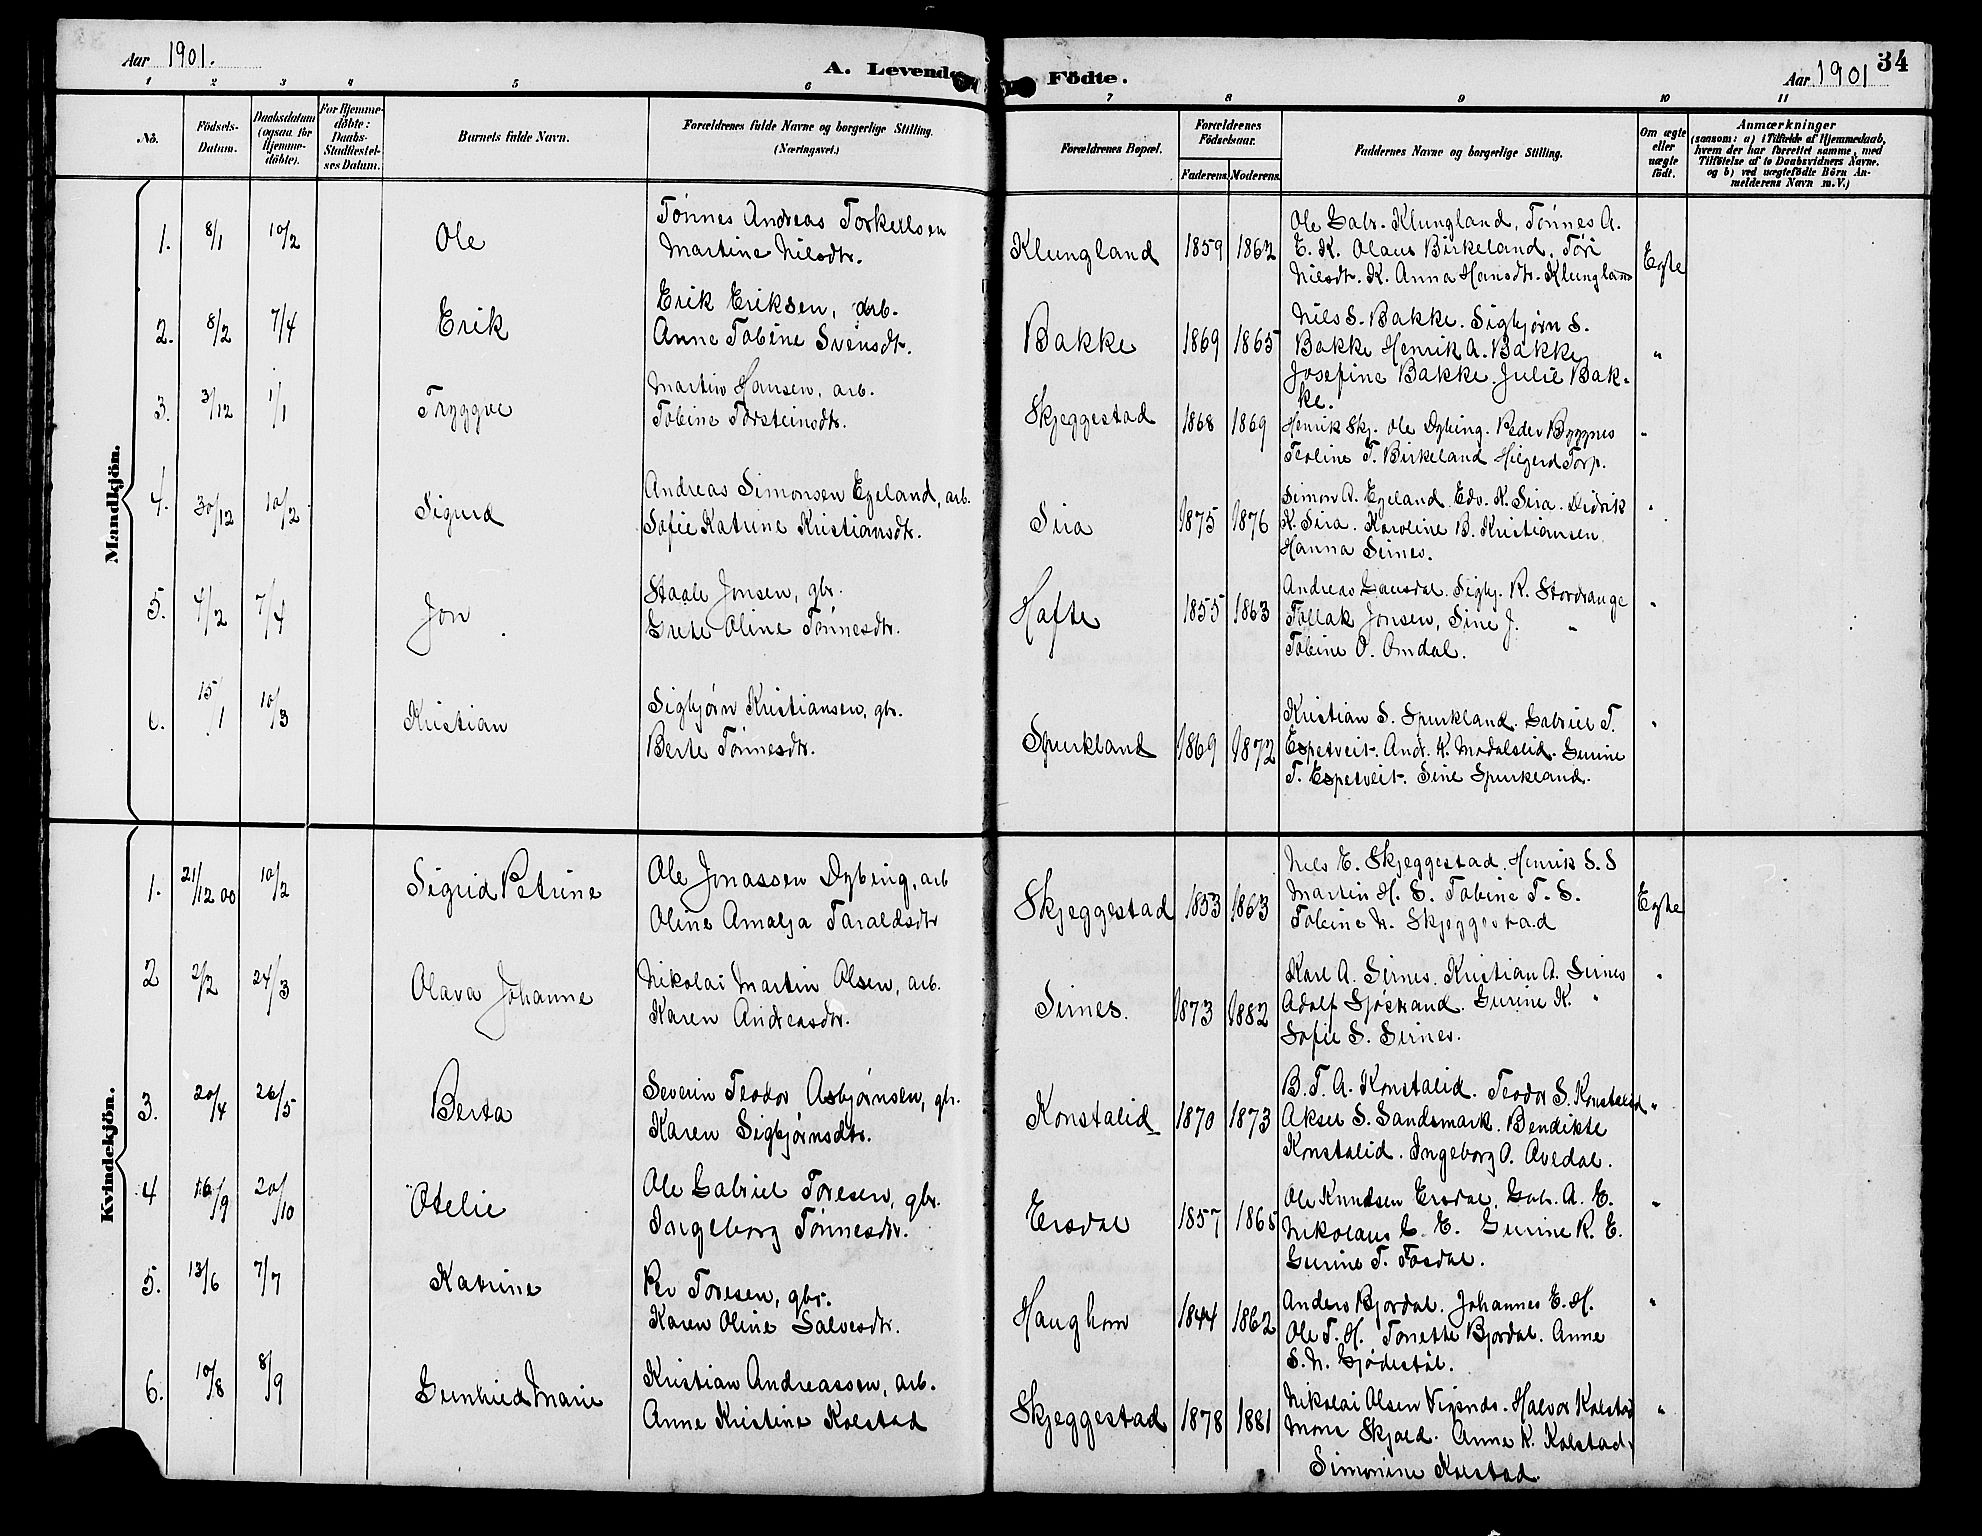 Aar 1901.
A. Levende Födte.
Aar 1901
34
1 2 3 4 5 6 7 8 9 10 11
No.
Födsels-
Datum.
Daabsdatum
(ogsaa for
Hjemme-
döbte).
For Hjemme-
döbte:
Daabs-
Stadfæstel-
ses Datum.
Barnets fulde Navn.
Forældrenes fulde Navne og borgerlige Stilling.
(Næringsvei.)
Forældrenes Bopæl.
Forældrenes
Födselsaar.
Faderens. Moderens.
Faddernes Navne og borgerlige Stilling.
Om ægte
eller
uægte
födt.
Anmærkninger
(saasom: a) i Tilfælde af Hjemmedaab,
hvem der har forrettet samme, med
Tilföielse af to Daabsvidners Navne.
og b) ved uægtefödte Börn An-
melderens Navn m.V.)
Mandkjön.
1. 8/1 10/2 Ole
Tönnes Andreas Torkellsen
Martine Nilsdtr.
Klungland 1859 1862
Ole Gabr. Klungland, Tönnes A.
E. K. Olaus Birkeland, Töri
Nilsdt. K. Anna Hansdtr. Klungland
Egte
2. 8/2 7/4 Erik
Erik Eriksen, arb.
Anne Tobine Svensdtr.
Bakke 1869 1865
Nils S. Bakke. Sigbjørn S.
Bakke Henrik A. Bakke
Josefine Bakke. Julie Bak-
ke.
"
3. 3/12 1/1 Tryggve
Martin Hansen, arb.
Tobine Torsteinsdtr.
Skjeggestad 1868 1869
Henrik Skj. Ole Dybing. Peder Byggnes
Teoline T. Birkeland Hilgerd Torp.
"
4. 30/12 10/2 Sigurd
Andreas Simonsen Egeland, arb.
Sofie Katrine Kristiansdtr.
Sira 1875 1876
Simon A. Egeland. Edv. K. Sira. Didrik
K. Sira. Karoline B. Kristiansen.
Hanna Sirnes.
"
5. 4/2 7/4 Jon
Staale Jonsen, gbr.
Grete Oline Tönnesdtr.
Hafte 1855 1863
Andreas Gausdal. Sigbj. R. Stordrange
Tollak Jonsen, Sine J. "
Tobine O. Omdal.
"
6. 15/1 10/3 Kristian
Sigbjørn Kristiansen, gbr.
Berte Tönnesdtr.
Spurkland 1869 1872
Kristian S. Spurkland. Gabriel T.
Espetveit. Andr. K. Modalslid. Gurine
T. Espetveit. Sine Spurkeland.
"
Kvindekjön.
1. 21/12 00 10/2 Sigrid Petrine
Ole Jonassen Dybing, arb
Oline Amalja Taraldsdtr
Skjeggestad 1853 1863
Nils E. Skjeggestad. Henrik S. S
Martin H. S. Tobine T. S.
Tobine N. Skjeggestad
Egte
2 2/2 24/3 Olava Johanne
Nikolai Martin Olsen, arb.
Karen Andreasdtr.
Sirnes. 1873 1882
Karl A. Sirnes. Kristian A. Sirnes
Adolf Sjöstrand. Gurine K. "
Sofie S. Sirnes.
"
3. 20/4 26/5 Berta
Severin Teodor Asbjørnsen, gbr.
Karen Sigbjørnsdtr.
Konstalid 1870 1873
B. T. A. Konstalid. Teodor S. Konstalid
Aksel S. Sandsmark. Bendikte
Konstalid. Ingeborg O. Avedal.
"
4 16/9 20/10 Otelie
Ole Gabriel Toresen, gbr.
Ingeborg Tönnesdtr.
Ersdal 1857 1865
Ole Knudsen Ersdal, Gab. A. E.
Nikolaus G. E. Gurine R. E.
Gurine T. Fosdal.
"
5. 13/6 7/7 Katrine
Per Toresen, gbr.
Karen Oline Salvesdtr.
Haughom 1844 1862
Anders Bjordal. Johannes E. H.
Ole T. H. Tonette Bjordal. Anne
S. N. Gjödestöl.
"
6. 10/8 8/9 Gunhild Marie
Kristian Andreassen, arb.
Anne Kristine Kolstad
Skjeggestad 1878 1881
Nikolai Olsen Halvor Kolstad
Mons Skjold. Anne K. Kolstad.
Simonine Kolstad.
"